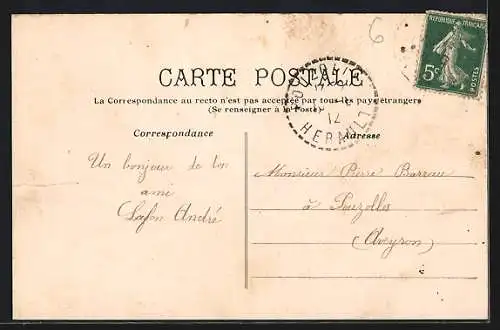 6
REPUBLIQUE FRANÇAISE
5c
POSTES
CARTE POSTALE
HERAULT
La Correspondance au recto n'est pas acceptée par tous les pays étrangers
(Se renseigner à la Poste)
Correspondance
Adresse
Un bonjour de ton
ami
Lafon André
Monsieur Pierre Barrau
à
(Aveyron)